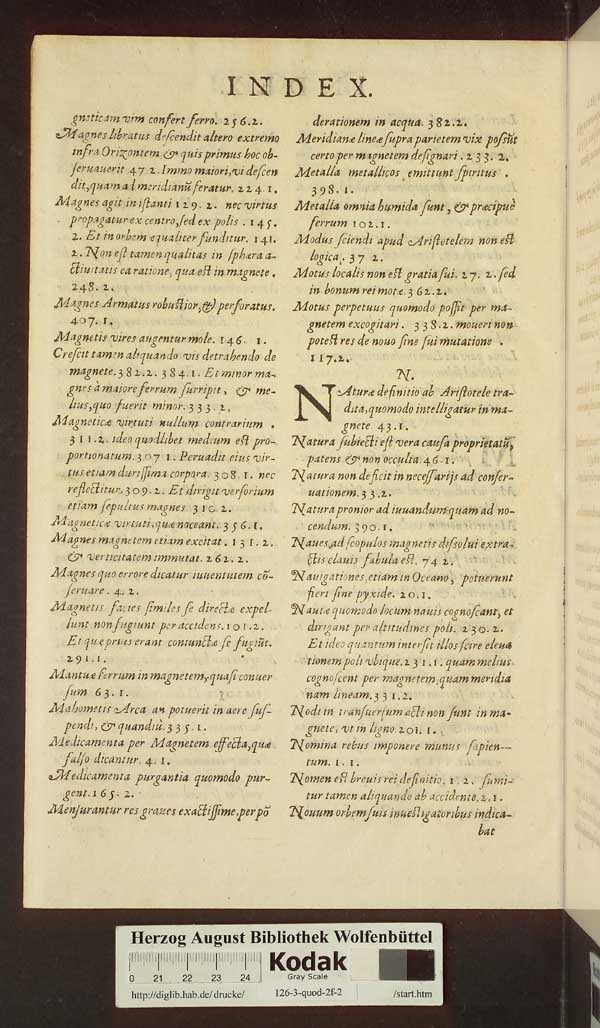 INDEX.
gneticam vim confert ferro. 256.2.
Magnes libratus descendit altero extremo
infra Orizontem, & quis primus hoc ob-
seruauerit 47.2. Immo maiori, vi descen
dit, quam ad meridianũ feratur. 224.1.
Magnes agit in istanti 129. 2. nec virtus
propagatur ex centro, sed ex polis. 145.
2. Et in orbem æqualiter funditur. 141.
2. Non est tamen qualitas in sphæra a-
ctiuitatis ea ratione, qua est in magnete.
248. 2.
Magnes Armatus robustior, & perforatus.
407. 1.
Magnetis vires augentur mole. 146 1.
Crescit tamen aliquando vis detrahendo de
magnete. 382.2. 384.1. Et minor ma-
gnes à maiore ferrum surripit, & me-
lius, quo fuerit minor. 333.2.
Magneticæ virtuti nullum contrarium.
311.2. ideo quodlibet medium est pro-
portionatum. 307 1. Peruadit eius vir-
tus etiam durissima corpora. 308.1. nec
reflectitur. 309.2. Et dirigit versorium
etiam sepultus magnes. 310.2.
Magneticæ virtuti, quæ noceant. 356.1.
Magnes magnetem etiam excitat. 131.2.
& verticitatem immutat. 262.2.
Magnes quo errore dicatur iuuentutem cõ-
seruare. 4.2.
Magnetis facies similes se directæ expel-
lunt non fugiunt per accidens. 101.2.
Et quæ prius erant coniunctæ se fugiũt.
291.1.
Mantuæ ferrum in magnetem, quasi conuer
sum 63. 1.
Mahometis Arca an potuerit in aere sus-
pendi, & quandiù. 335.1.
Medicamenta per Magnetem effecta, quæ
falso dicantur. 4.1.
Medicamenta purgantia quomodo pur-
gent. 165.2.
Mensurantur res graues exactissime, per põ
derationem in acqua. 382.2.
Meridianæ lineæ supra parietem vix possũt
certo per magnetem designari. 233. 2.
Metalla metallicos emittunt spiritus.
398. 1.
Metalla omnia humida sunt, & præcipuè
ferrum 102.1.
Modus sciendi apud Aristotelem non est
logica. 37 2.
Motus localis non est gratia sui. 27. 2. sed
in bonum rei motæ. 362.2.
Motus perpetuus quomodo possit per ma-
gnetem excogitari. 338.2. mouert non
potest res de nouo sine sui mutatione.
117.2.
N.
NAturæ definitio ab Aristotele tra-
dita, quomodo intelligatur in ma-
gnete. 43.1.
Natura subiecti est vera causa proprietatũ,
patens & non occulta. 46.1.
Natura non deficit in necessarijs ad conser-
uationem. 33.2.
Natura pronior ad iuuandum quam ad no-
cendum. 390.1.
Naues, ad scopulos magnetis dissolui extra-
ctis clauis fabula est. 74 2.
Nauigationes, etiam in Oceano, potuerunt
fieri sine pyxide. 20.1.
Nautæ quomodo locum nauis cognoscant, et
dirigant per altitudines poli. 230. 2.
Et ideo quantum intersit illos scire eleua
tionem poli vbique. 231.1. quam melius
cognoscent per magnetem, quam meridia
nam lineam. 331.2.
Nodi in transuersum acti non sunt in ma-
gnete, vt in ligno. 201. 1.
Nomina rebus imponere munus sapien-
tum. 1. 1.
Nomen est breuis rei definitio. 1. 2. sumi-
tur tamen aliquando ab accidente. 2.1.
Nouum orbem suis inuestigatoribus indica-
bat
Herzog August Bibliothek Wolfenbüttel
0 21 22 23 24
Kodak
Gray Scale
http://diglib.hab.de/drucke/ 126-3-quod-2f-2 /start.htm